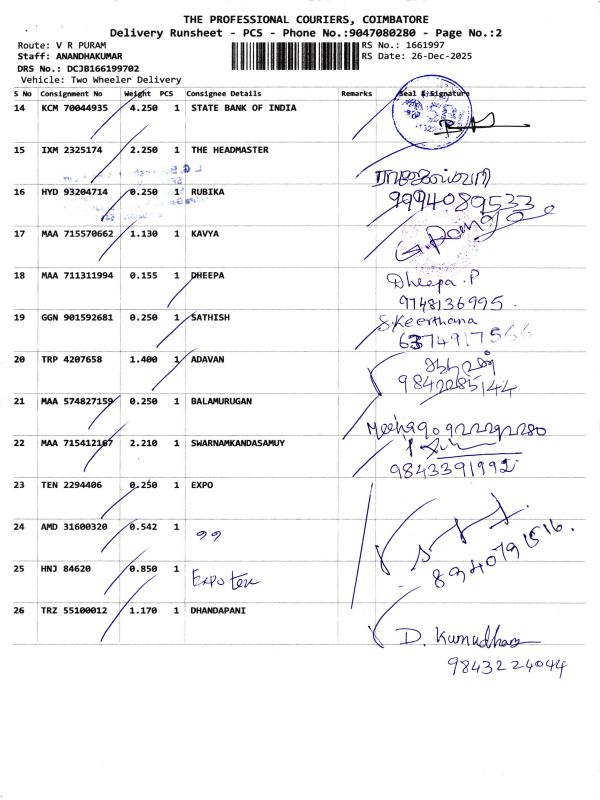 THE PROFESSIONAL COURIERS, COIMBATORE
Delivery Runsheet - PCS - Phone No.:9047080280 - Page No.:2
Route: V R PURAM
RS No.: 1661997
Staff: ANANDHAKUMAR
RS Date: 26-Dec-2025
DRS No.: DCJB166199702
Vehicle: Two Wheeler Delivery
S No Consignment No Weight PCS Consignee Details Remarks Seal & Signature
14 KCM 70044935 4.250 1 STATE BANK OF INDIA
15 IXM 2325174 2.250 1 THE HEADMASTER
16 HYD 93204714 0.250 1 RUBIKA
9994089533
17 MAA 715570662 1.130 1 KAVYA
18 MAA 711311994 0.155 1 DHEEPA
Dheepa.P
9748136995.
19 GGN 901592681 0.250 1 SATHISH
S.Keerthana
6374917566
20 TRP 4207658 1.400 1 ADAVAN
9842285144
21 MAA 574827159 0.250 1 BALAMURUGAN
22 MAA 715412167 2.210 1 SWARNAMKANDASAMUY
9843391992
23 TEN 2294406 0.250 1 EXPO
24 AMD 31600320 0.542 1 ,,
8940791516.
25 HNJ 84620 0.850 1 Expo Tex
26 TRZ 55100012 1.170 1 DHANDAPANI
D. Kumudhaa
9843224044